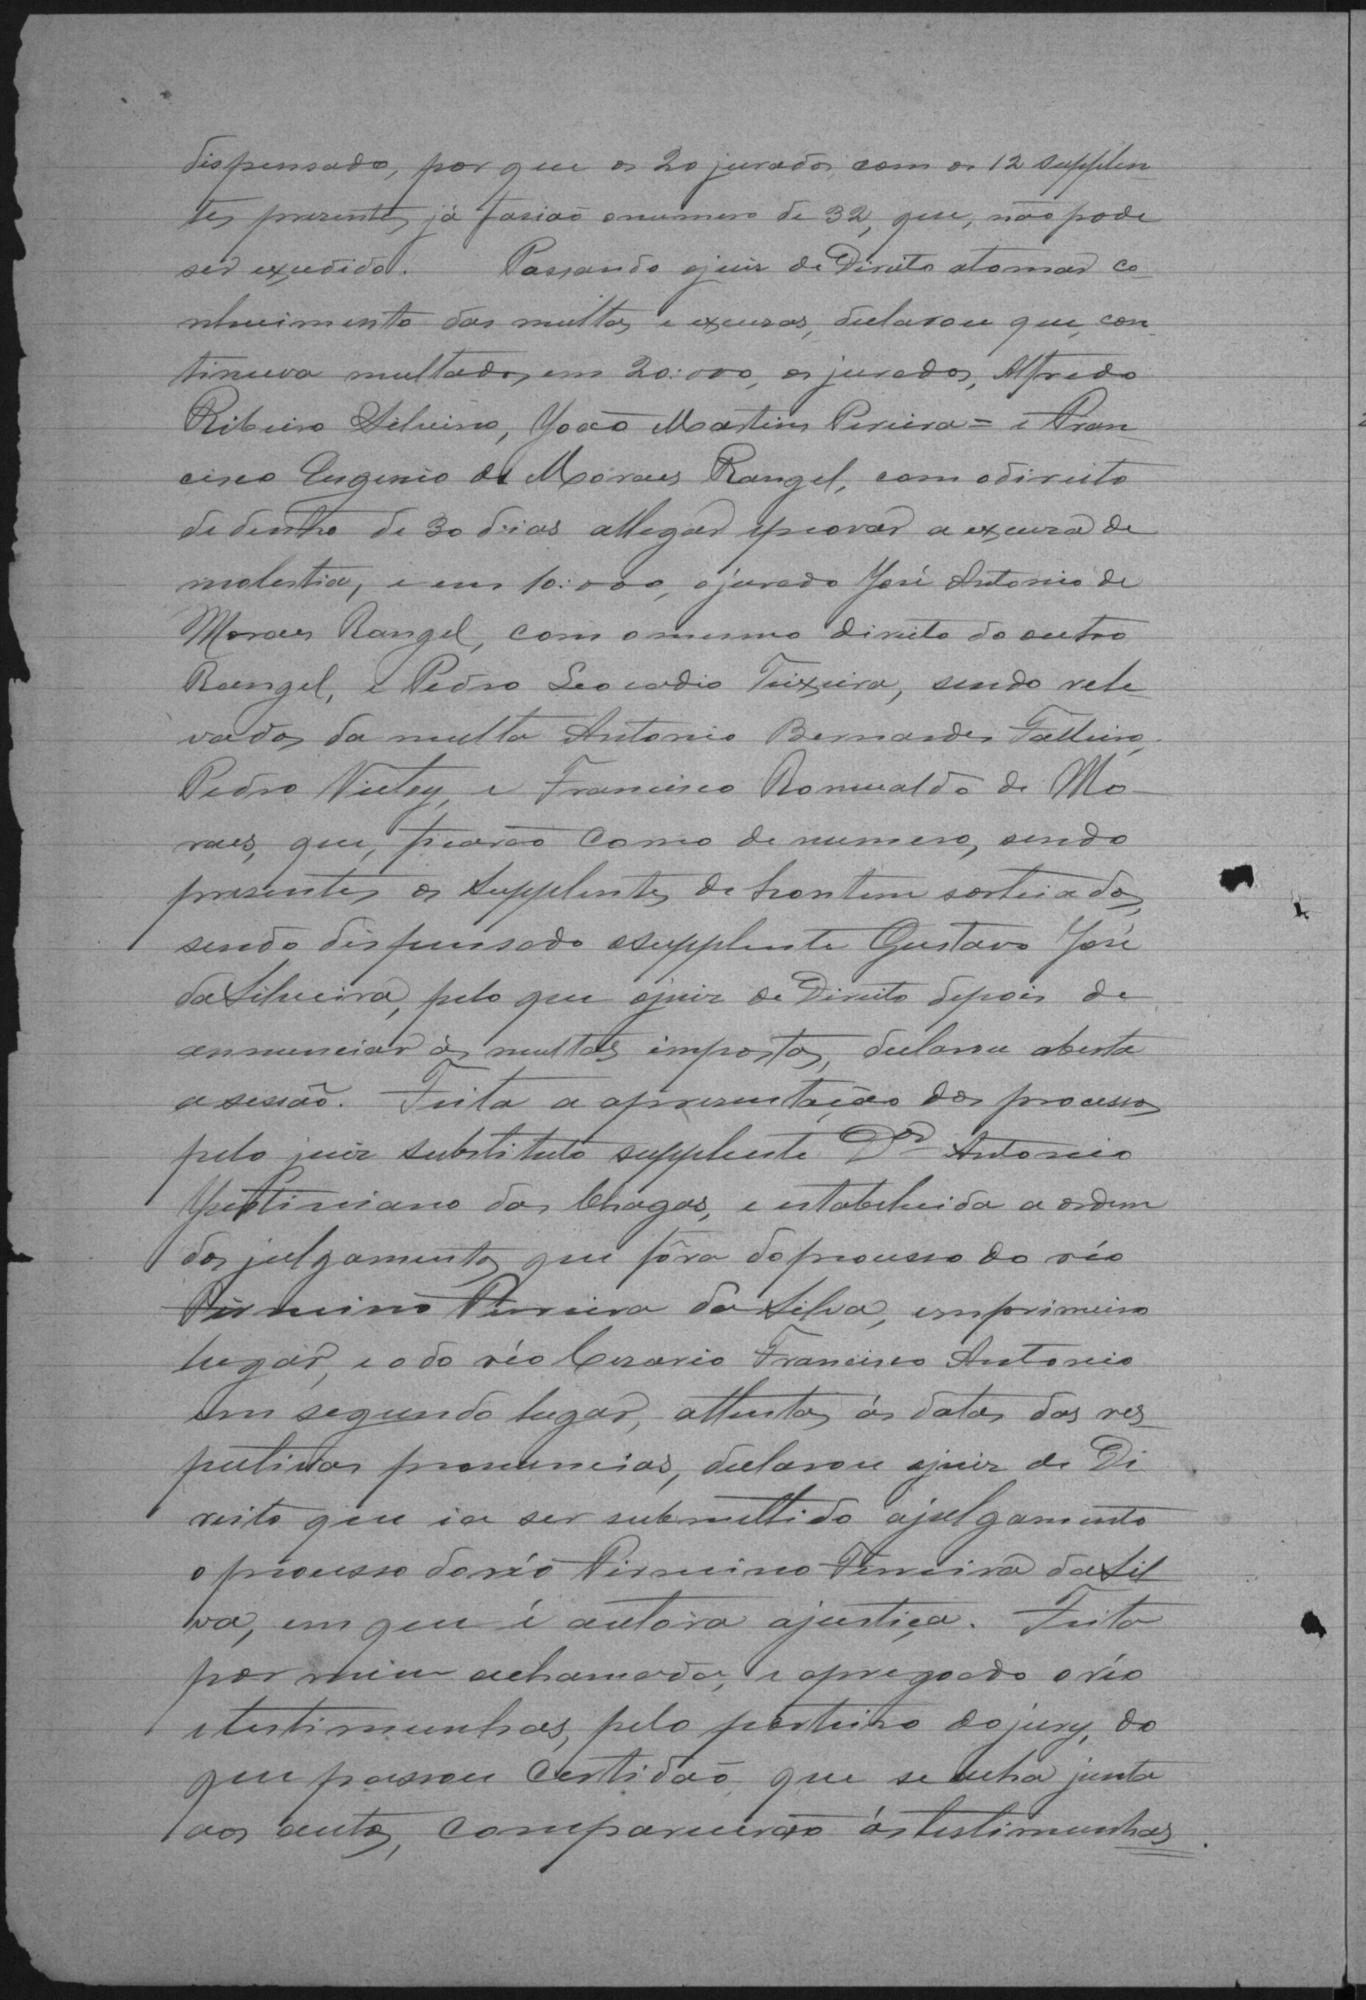 dispensado, por que os 20 jurados, com os 12 supplen
tes presentes, já fasião o numero de 32, que, não pode
ser excedido. Passando o juiz de Direito a tomar co-
nhecimento das multas e excusas, declarou que, con
tinuva multados em 20:000, os jurados, Alfredo
Ribeiro Silvino, João Martins Pereira = e Fran-
cisco Eugenio de Moraes Rangel, com o direito
de dentro de 30 dias allegar e provar a excusa de
molestia, e em 10:000, o jurado José Antonio de
Moraes Rangel, com o mesmo direito do outro
Rangel, e Pedro Leocadio Teixeira, sendo rele-
vados da multa Antonio Bernardes
Pedro e Francisco Romualdo de Mo-
raes, que, ficarão como de numero, sendo
presentes os supplentes de hontem sorteiados,
sendo dispensado o supplente Gustavo José
da Silveira, pelo que o juiz de Direito depois de
annunciar ás multas impostas, declarou aberta
a sessão. Feita a apresentação dos processos
pelo juiz substituto supplente Dor Antonio
Justiniano das Chagas, e estabelecida a ordem
dos julgamentos, que fôra do processo do réo
Firmino Ferreira da Silva, em primeiro
lugar, e o do réo Cesario Francisco Antonio
em segundo lugar, attentas ás datas das res-
pectivas pronuncias, declarou o juiz de Di
reito que ia ser submettido a julgamento
o processo do réo Firmino Ferreira da Sil
va, em que é autora a justiça. Feita
por mim a chamada, e apregoado o réo
e testimunhas, pelo porteiro do jury, do
que passou certidão, que se acha junta
aos autos, comparecerão ás testimunhas.